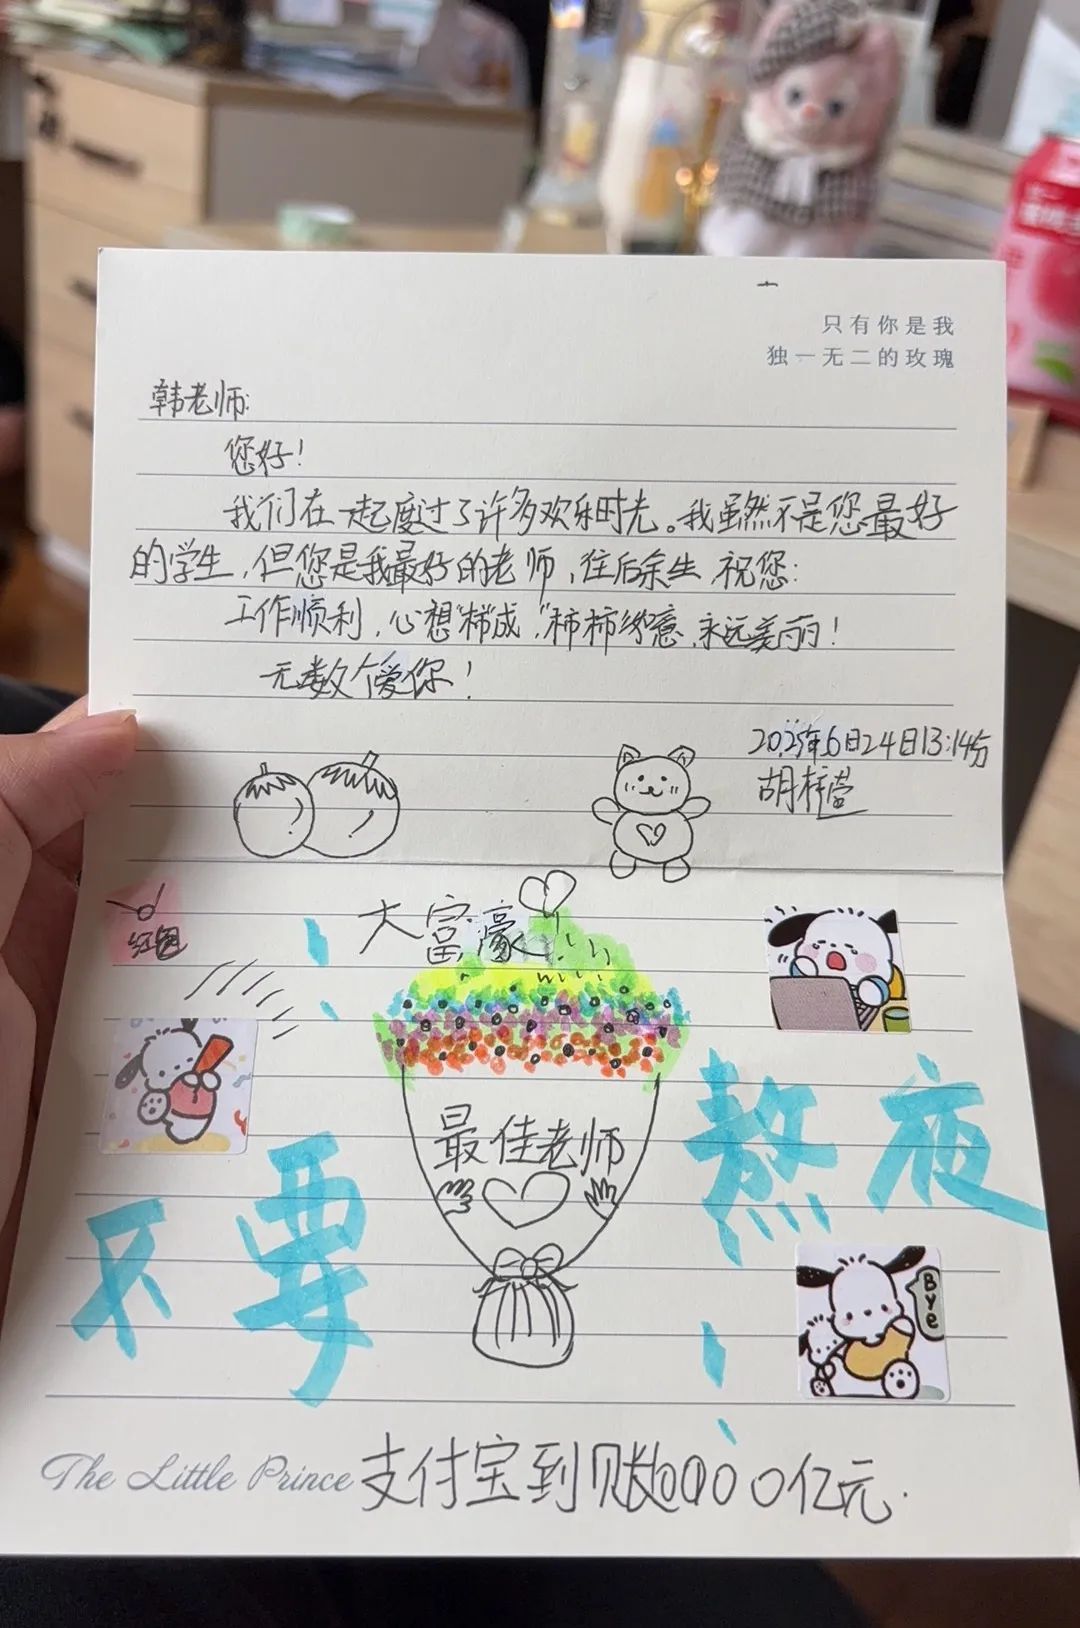 只有你是我
独一无二的玫瑰
韩老师:
您好!
我们在一起度过了许多欢乐时光。我虽然不是您最好
的学生,但您是我最好的老师,往后余生,祝您:
工作顺利,心想“柿”成,“柿柿”如意,永远美丽!
无数个爱你!
2025年6月24日13:14分
胡梓萱
大富豪
红包
最佳老师
不要熬夜
Bye
The Little Prince
支付宝到账
亿元.